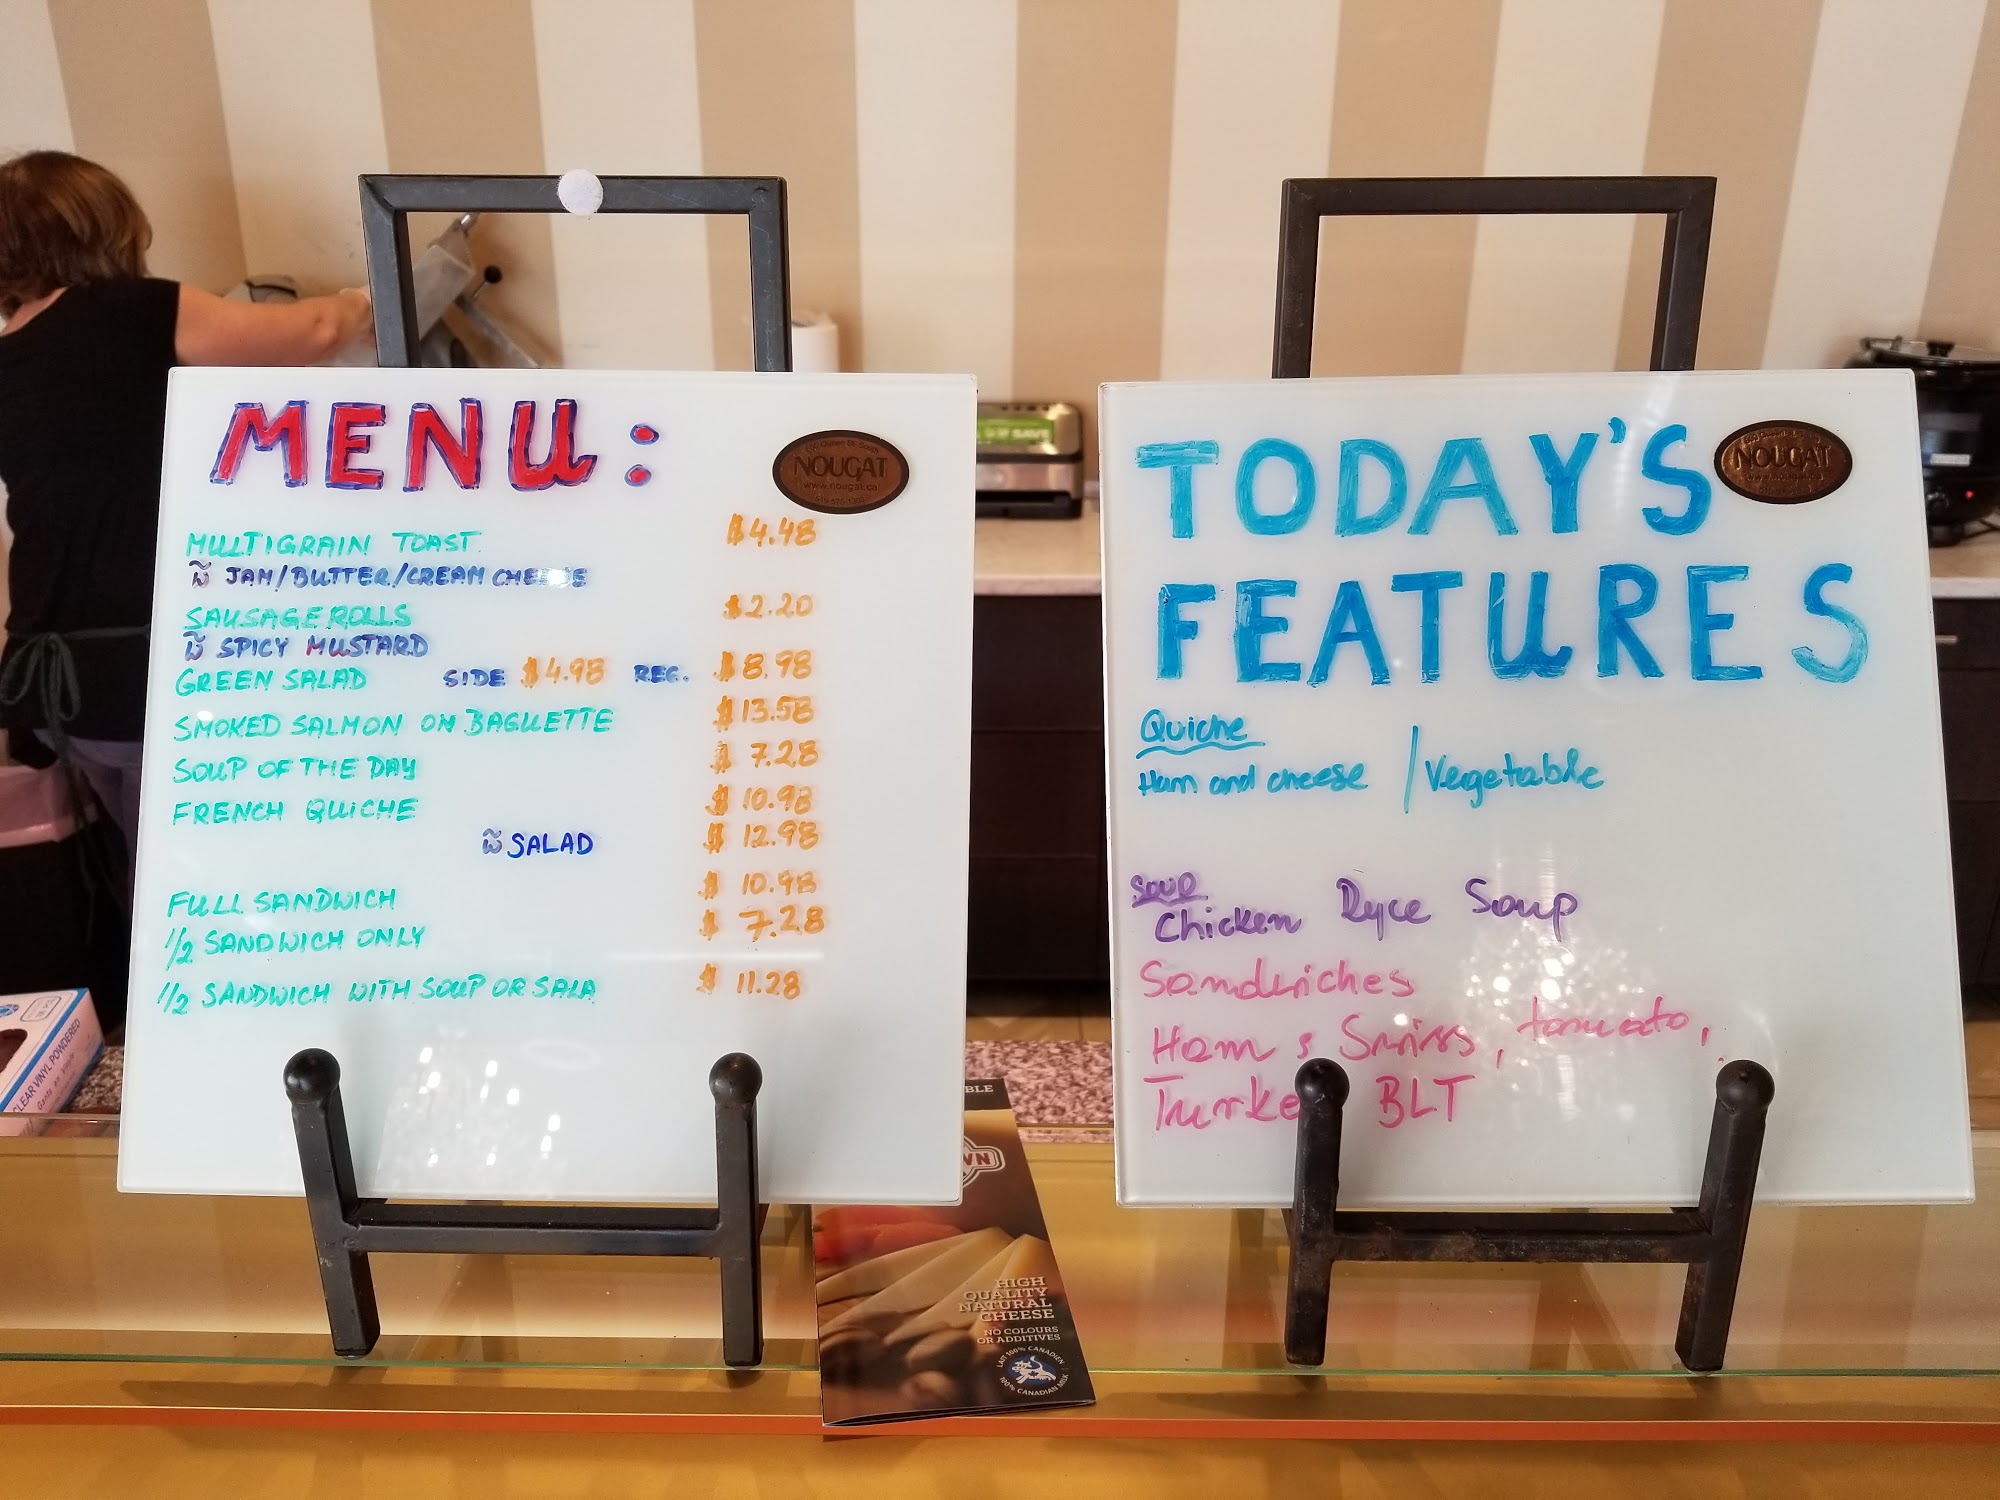 MENU:
NOUGAT
www.nougat.ca
MULTIGRAIN TOAST $4.48
W JAM/BUTTER/CREAM CHEESE
SAUSAGE ROLLS $2.20
W SPICY MUSTARD
GREEN SALAD SIDE $4.98 REG. $8.98
SMOKED SALMON ON BAGUETTE $13.58
SOUP OF THE DAY $7.28
FRENCH QUICHE $10.98
W SALAD $12.98
FULL SANDWICH $10.98
1/2 SANDWICH ONLY $7.28
1/2 SANDWICH WITH SOUP OR SALA $11.28
TODAY'S
FEATURES
NOUGAT
www.nougat.ca
Quiche
Ham and cheese / Vegetable
SOUP
Chicken Ryce Soup
Sandwiches
Ham & Swiss, tomato,
Turke BLT
CLEAR VINYL POWDERED
BLE
WN
HIGH
QUALITY
NATURAL
CHEESE
NO COLOURS
OR ADDITIVES
LAIT 100% CANADIEN
100% CANADIAN MILK